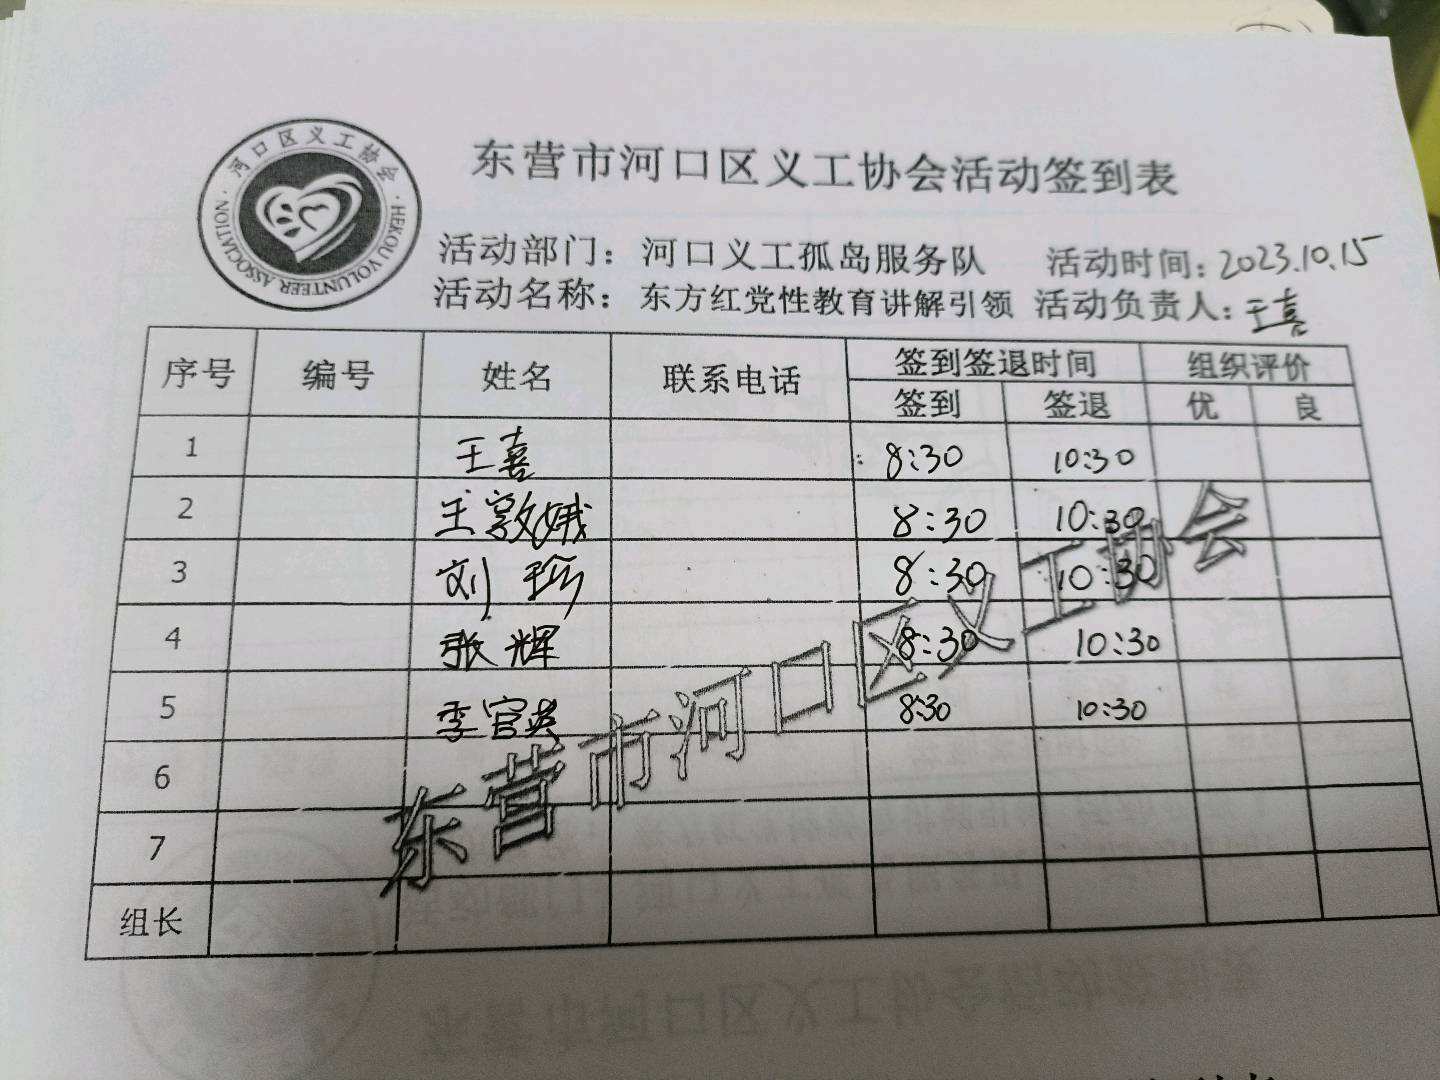 东营市河口区义工协会活动签到表
河口区义工协会
HEKOU VOLUNTEER ASSOCIATION
活动部门：河口义工孤岛服务队 活动时间：2023.10.15
活动名称：东方红党性教育讲解引领 活动负责人：王喜
序号 编号 姓名 联系电话 签到签退时间 组织评价
签到 签退 优 良
1 王喜 8:30 10:30
2 王敦娥 8:30 10:30
3 刘 8:30 10:30
4 张辉 8:30 10:30
5 李官英 8:30 10:30
6
7
组长
东营市河口区义工协会